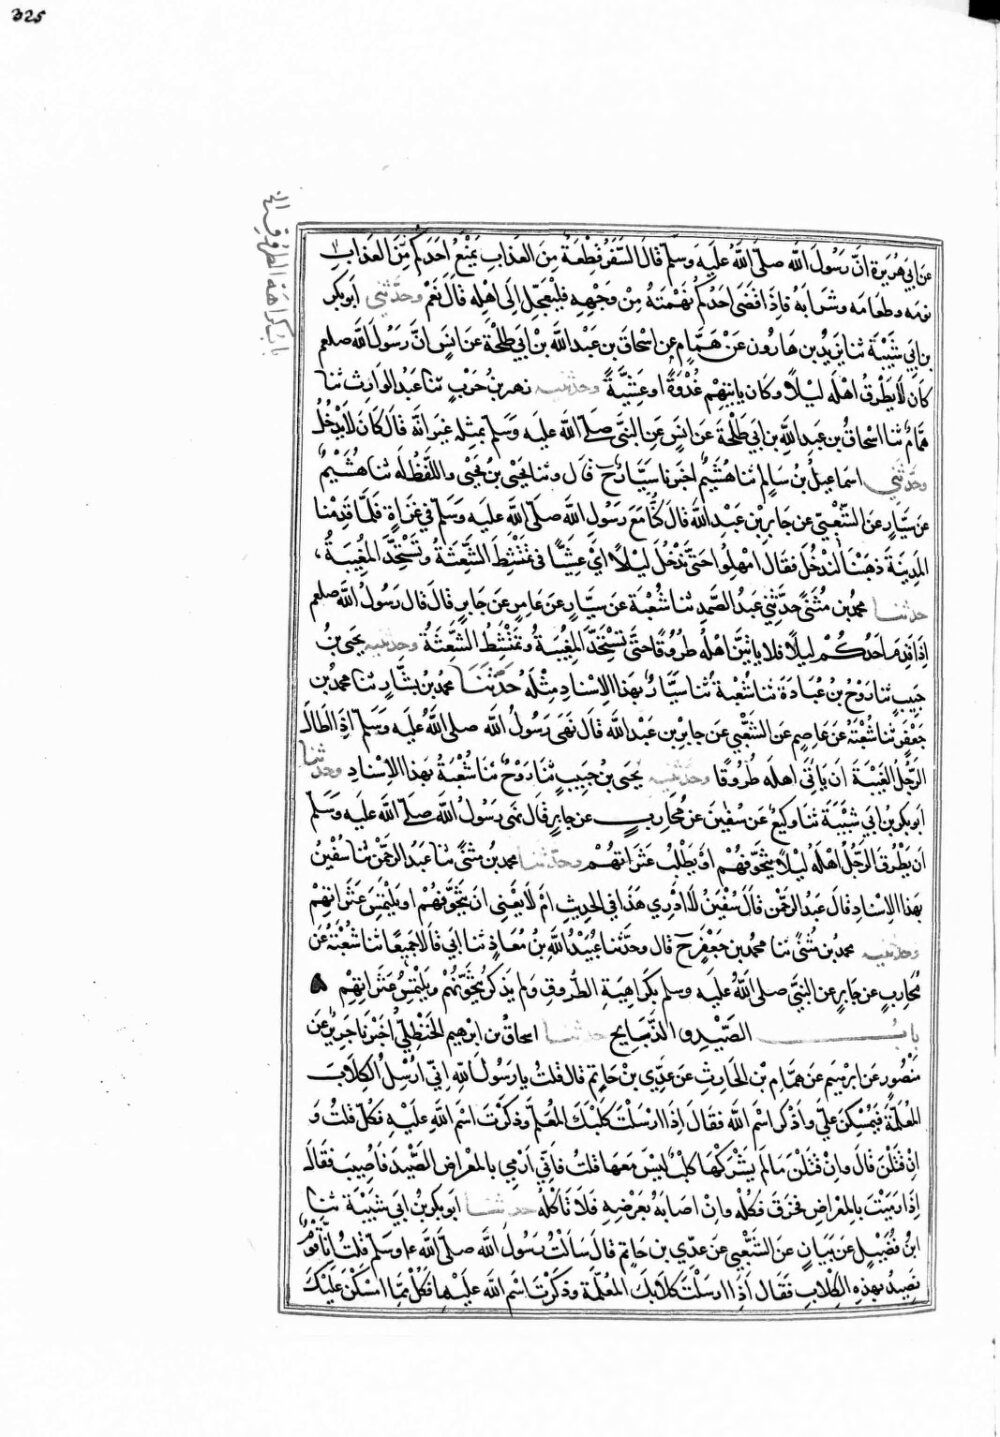 325
باب كراهة الطروق الخ
عن ابي هريرة ان رسول الله صلى الله عليه وسلم قال السفر قطعة من العذاب يمنع احدكم من العذاب
نومه وطعامه وشرابه فاذا قضى احدكم نهمته من وجهه فليعجل الى اهله قال نعم وحدثني ابو بكر
بن ابي شيبة ثنا يزيد بن هارون عن همام عن اسحاق بن عبد الله بن ابي طلحة عن انس ان رسول الله صلعم
كان لا يطرق اهله ليلا وكان ياتيهم غدوة او عشية وحدثنيه زهير بن حرب ثنا عبد الوارث ثنا
همام ثنا اسحاق بن عبد الله بن ابي طلحة عن انس عن النبي صلى الله عليه وسلم بمثله غير انه قال كان لا يدخل
وحدثني اسماعيل بن سالم ثنا هشيم اخبرنا سيار ح قال وثنا يحيى بن يحيى واللفظ له ثنا هشيم
عن سيار عن الشعبي عن جابر بن عبد الله قال كنا مع رسول الله صلى الله عليه وسلم في غزاة فلما قدمنا
المدينة ذهبنا لندخل فقال امهلوا حتى ندخل ليلا اي عشيا كي تمتشط الشعثة وتستحد المغيبة،
حدثنا محمد بن مثنى حدثني عبد الصمد ثنا شعبة عن سيار عن عامر عن جابر قال قال رسول الله صلعم
اذا قدم احدكم ليلا فلا ياتين اهله طروقا حتى تستحد المغيبة وتمتشط الشعثة وحدثنيه يحيى بن
حبيب ثنا روح بن عبادة ثنا شعبة ثنا سيار بهذا الاسناد مثله حدثنا محمد بن بشار ثنا محمد بن
جعفر ثنا شعبة عن عاصم عن الشعبي عن جابر بن عبد الله قال نهى رسول الله صلى الله عليه وسلم اذا اطال
الرجل الغيبة ان ياتي اهله طروقا وحدثنيه يحيى بن حبيب ثنا روح ثنا شعبة بهذا الاسناد وحدثنا
ابو بكر بن ابي شيبة ثنا وكيع عن سفين عن محارب عن جابر قال نهى رسول الله صلى الله عليه وسلم
ان يطرق الرجل اهله ليلا يتخونهم او يطلب عثراتهم وحدثنا محمد بن مثنى ثنا عبد الرحمن ثنا سفين
بهذا الاسناد قال عبد الرحمن قال سفين لا ادري هذا في الحديث ام لا يعني ان يتخونهم او يلتمس عثراتهم
وحدثنيه محمد بن مثنى ثنا محمد بن جعفر ح قال وحدثنا عبيد الله بن معاذ ثنا ابي قالا جميعا ثنا شعبة عن
محارب عن جابر عن النبي صلى الله عليه وسلم بكراهية الطروق ولم يذكر يتخونهم ويلتمس عثراتهم ۵
باب الصيد والذبايح حدثنا اسحاق بن ابرهيم الحنظلي اخبرنا جرير عن
منصور عن ابرهيم عن همام بن الحارث عن عدي بن حاتم قال قلت يا رسول الله اني ارسل الكلاب
المعلمة فيمسكن علي واذكر اسم الله فقال اذا ارسلت كلبك المعلم وذكرت اسم الله عليه فكل قلت و
ان قتلن قال وان قتلن ما لم يشركها كلب ليس معها قلت فاني ارمي بالمعراض الصيد فاصيب فقال
اذا رميت بالمعراض فخزق فكله وان اصابه بعرضه فلا تاكله حدثنا ابو بكر بن ابي شيبة ثنا
ابن فضيل عن بيان عن الشعبي عن عدي بن حاتم قال سالت رسول الله صلى الله عليه وسلم قلت انا قوم
نصيد بهذه الكلاب فقال اذا ارسلت كلابك المعلمة وذكرت اسم الله عليها فكل مما امسكن عليك